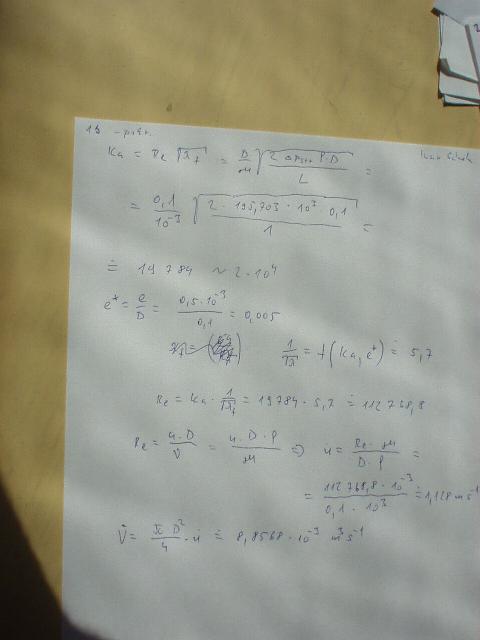 Ka = Re √λf = D/μ √(2 Δptr ρ·D / L) =
= 0,1/10⁻³ √(2 · 195,703 · 10³ · 0,1 / 1) =
≐ 19 784 ~ 2·10⁴
e* = e/D = 0,5·10⁻³/0,1 = 0,005
1/√λ = f (Ka, e*) ≐ 5,7
Re = Ka · 1/√λf = 19784 · 5,7 ≐ 112 768,8
Re = u·D/ν = u·D·ρ/μ ⇒ u = Re·μ/D·ρ =
= 112 768,8 · 10⁻³ / 0,1 · 10³ ≐ 1,128 m s⁻¹
V̇ = π·D²/4 · u ≐ 8,8568 · 10⁻³ m³s⁻¹